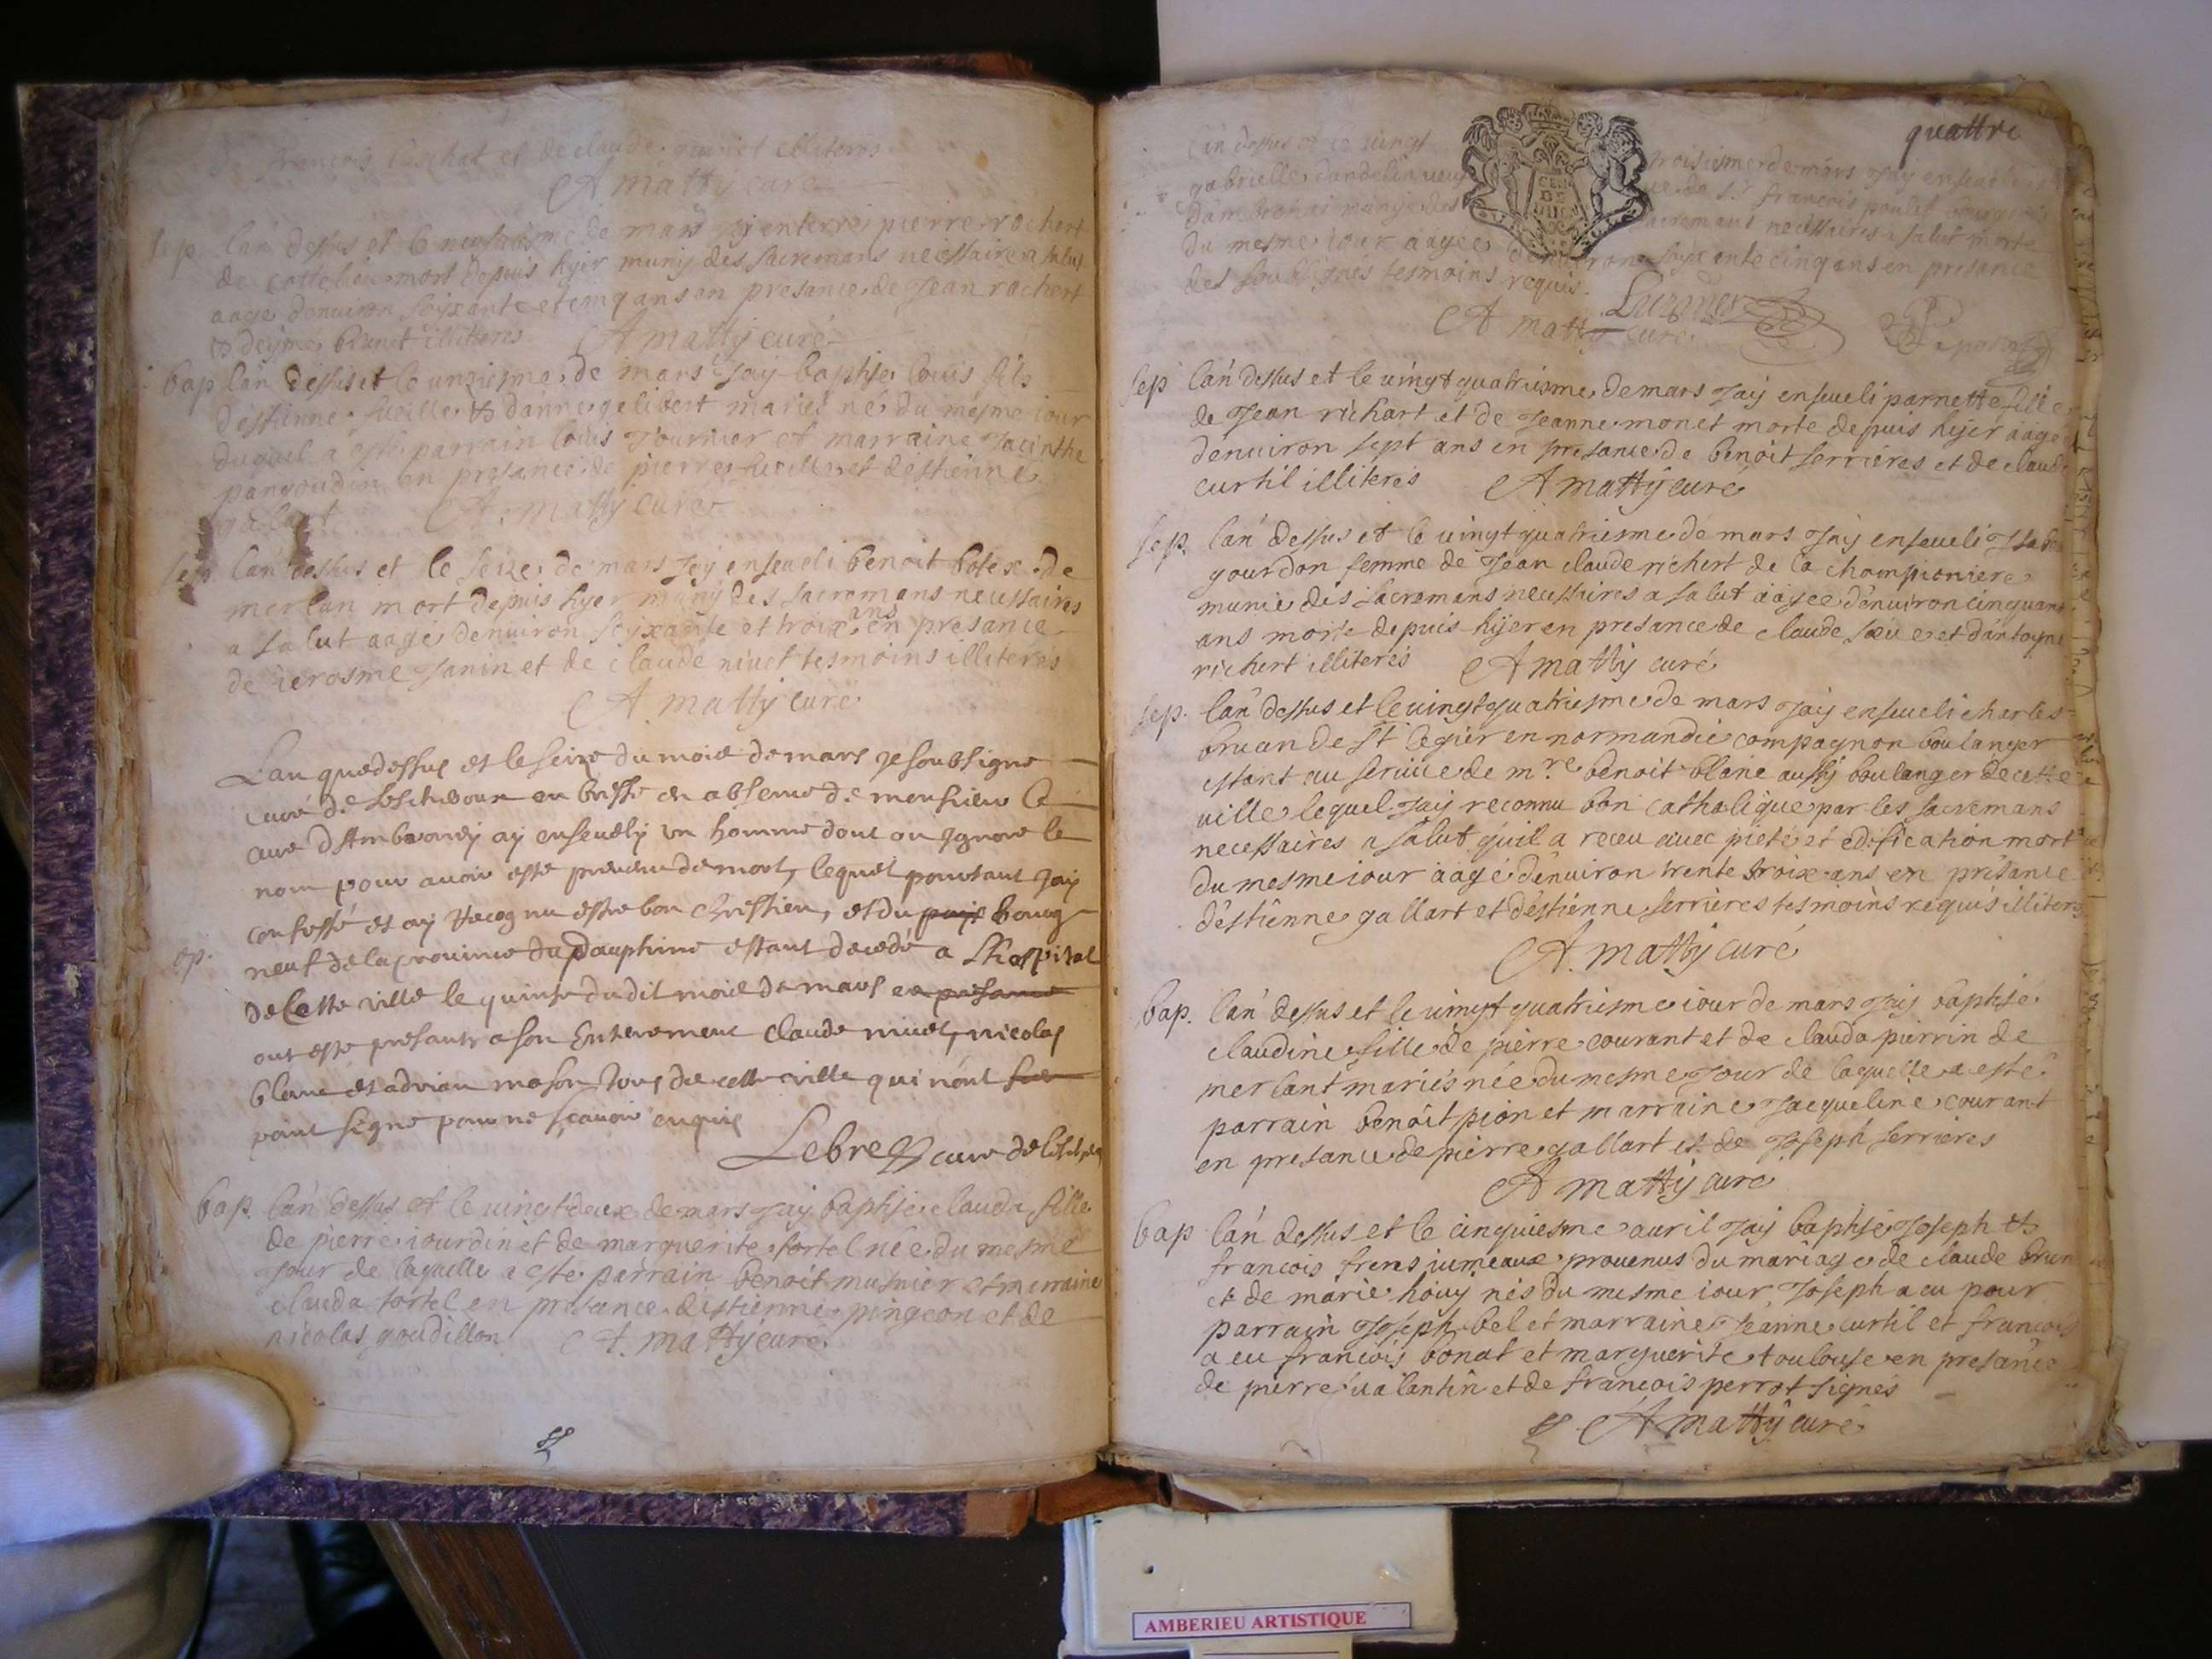 francois et de claude illiteres
A matty curé
sep. lan dessus et le neufuiesme de mars jay enterré pierre rochert
de mort depuis hyer muny des sacremans necessaires a salut
aagé denuiron soixante et cinq ans en presance de Jean rochert
illiteres A matty curé
bap lan dessus et le unziesme de mars Jay baptisé louis fils
destienne & danne gelibert mariés né du mesme iour
duquel a esté parrain louis Tournier et marraine Jacinthe
pangoudin en presance de pierre et destienne
galart A. matty curé
sep lan dessus et le seize de mars Jay enseueli benoit botex de
merlan mort depuis hyer muny des sacremans necessaires
a salut aagé denuiron soixante et troix ans en presance
de ierosme Janin et de claude niuet tesmoins illiterés
A. matty curé
Lan que dessus et le seize du mois de mars Je soubsigné
curé de en bresse en absence de monsieur le
curé dAmbronay ay enseuely un homme dont on Ignore le
nom pour auoir esté preuenu de mort, lequel pourtant Jay
confessé et ay recognu estre bon chrestien, et du pays bourg
neuf de la prouince du Dauphiné estant decedé a Lhospital
de Cette ville le quinze dudit mois de mars en presance
ont esté presants a son Enterrement claude niuet, nicolas
blanc et adrian mason tous de cette ville qui nont
point signé pour ne sçauoir enquis
Lebre curé de
bap. lan dessus et le uingt deux de mars Jay baptisé clauda fille
de pierre iourdin et de marguerite tortel née du mesme
Jour de laquelle a esté parrain benoit musnier et marraine
clauda tortel en presance destienne pingeon et de
nicolas goudillon A. matty curé
quattre
lan dessus et le uingt troisiesme de mars Jay enseueli
gabrielle dandelin ueufue de Sr francois
munye des sacremant necessaires a salut morte
du mesme iour aagée denuiron soixante cinq ans en presance
des soubsignés tesmoins requis.
A matty curé
sep lan dessus et le uingt quatriesme de mars Jay enseueli parnette fille
de Jean richart et de Jeanne monet morte depuis hyer aagé
denuiron sept ans en presance de benoit serrieres et de claude
curtil illiterés A matty curé
sep. lan dessus et le uingt quatriesme de mars Jay enseueli
gourdon femme de Jean claude richert de la championiere
munie des sacremans necessaires a salut aagée denuiron cinquant
ans morte depuis hyer en presance de claude et dantoyne
richert illiterés A matty curé
sep. lan dessus et le uingt quatriesme de mars Jay enseueli charles
bruan de St legier en normandie compagnon boulanger
estant au seruice de mre benoit blanc aussy boulanger de cette
uille lequel Jay reconnu bon catholique par les sacremans
necessaires a salut quil a receu auec pieté et edification mort
du mesme iour aagé denuiron trente troix ans en presance
destienne gallart et destienne serrieres tesmoins requis illiteres
A. matty curé
bap. lan dessus et le uingt quatriesme iour de mars Jay baptisé
claudine fille de pierre courant et de clauda pierrin de
merlant mariés née du mesme Jour de laquelle a esté
parrain benoit pion et marraine Jacqueline courant
en presance de pierre gallart et de Joseph serrieres
A matty curé
bap lan dessus et le cinquiesme auril Jay baptisé Joseph &
francois freres iumeaux prouenus du mariage de claude brun
et de marie houy nés du mesme iour, Joseph a eu pour
parrain Joseph bel et marraine Jeanne curtil et francois
a eu francois bonat et marguerite toulouse en presance
de pierre ualantin et de francois perrot signés
A matty curé
AMBERIEU ARTISTIQUE